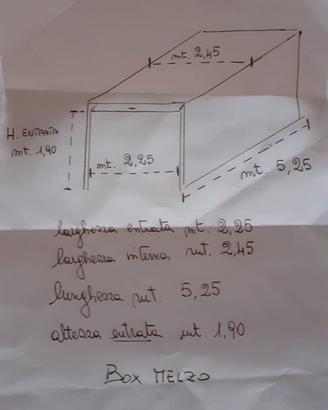 mt. 2,45
H. ENTRATA
mt. 1,90
mt. 2,25
mt. 5,25
larghezza entrata mt. 2,25
larghezza interna mt. 2,45
lunghezza mt. 5,25
altezza entrata mt 1,90
BOX MELZO